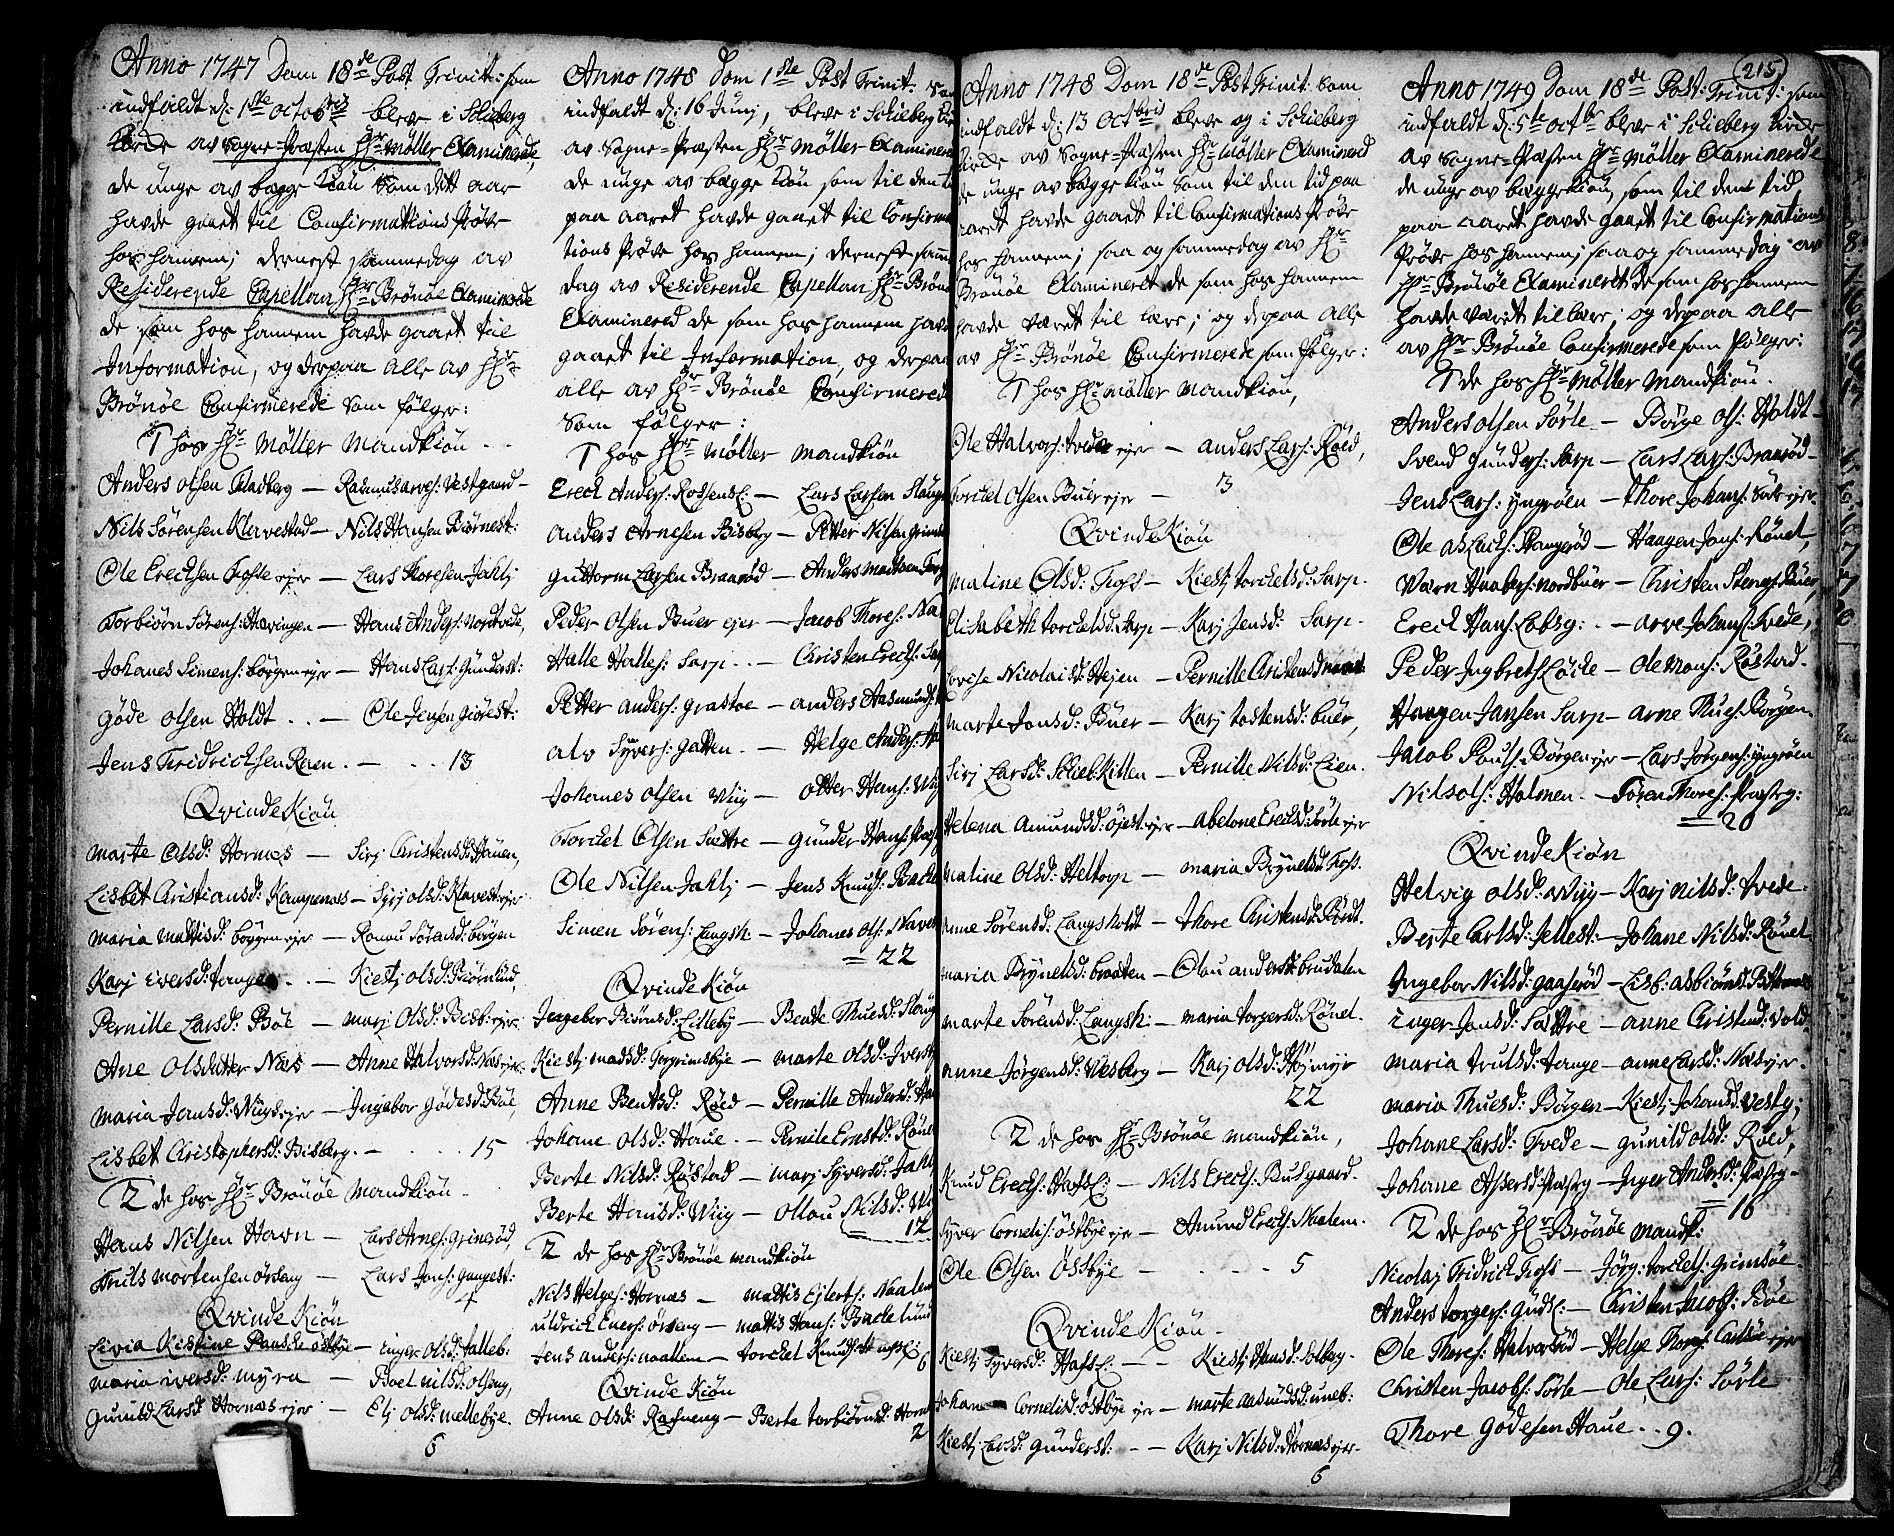 Anno 1747 Dom 18de Post Trinit: som
indfaldt d: 1ste Octobris blev i Schieberg
Kirke av Sogne-Præsten Hr Møller Examinerede,
de unge av begge Kiøn som dett aar
havde gaaet til Confirmations Prøve
hos hannem; dernest sammedag av
Residerende Capellan Hr Brønøe Examinerede
de som hos hannem havde gaaet til
Information, og derpaa alle av Hr
Brønøe Confirmerede som følger:
1 hos Hr Møller Mandkiøn
Anders Olsen Fladberg — Rasmus arves: Vestgaard
Nils Sørensen Klavestad — Nils Hansen Biørnest:
Ole Erechsen Tofte ejer — Lars Thoresen Jahlj
Torbiørn Sørens: Havingen — Hans Anders: Nordtvede,
Johanes Simens: børgen ejer — Hans Lars: Gunderst:
Gøde Olsen Holdt . . — Ole Jensen Giørest:
Jens Fridrichsen Reen . — . . 13
Qvinde Kiøn
Marte Olsd: Hornes — Sirj Christensd: Hauen,
Lisbet Christiansd: Kampenæs — Syrj olsd: Klavest: ejer
Maria Mattisd: børgen ejer — Ronau Sørensd: børgen
Karj Eversd: Tangen . . — Kiestj olsd: Biørnlud,
Pernille Larsd: Bøe — Marj Olsd: Bisb: ejer
Ane Olsdatter Næs — Anne Halvorsd: Næs ejer
Maria Jansd: Wiigs ejer — Ingebor Gødesd: Bøe,
Lisbet Christophersd: Bisberg. — . . . 15
2 de hos Hr Brønøe Mandkiøn
Hans Nilsen Havn — Lars Arnes: Grimsrød,
Truls Mortensen ørseng — Lars Jons: gangest:
4
Qvinde Kiøn
Livia Kistine Panske østbye — Inger Olsd: Talleb:
Maria Iversd: Myra — Boel Nilsd: Olseng,
Gunild Larsd Hornæs ejer — Elj olsd: Mellebye.
6
Anno 1748 Dom 1ste Post Trinit. som
indfaldt d: 16 Junij, blev i Schieberg
av Sogne-Præsten Hr Møller Examinere
de unge av begge Kiøn som til den
paa aaret havde gaaet til Confirma
tions Prøve hos hannem; dernest samme
dag av Residerende Capellan Hr Brønøe
Examinered de som hos hannem havde
gaaet til Information, og derpaa
alle av Hr Brønøe Confirmerede
som følger:
1 hos Hr Møller Mandkiøn
Erech Anders: — Lars Larsen Haug
Anders Arnesen Bisberg — Petter Nilsen
Guttorm Larsen Braarød — Anders Madsen
Peder Olsen Buer ejer — Jacob Thores:
Halle Halles: Sarp . . — Christen Erechs:
Petter Anders: Grastoe — Anders Aasmunds:
Alv Syvers: Gatten . — Helge Anders:
Johanes Olsen Wiig — Otter Hans: Wiig
Torchel Olsen Sættre — Gunder Hans:
Ole Nilsen Jahlj — Jens Knuds: Backe
Simen Sørens: Langsh — Johanes Ols:
= 22
Qvinde Kiøn
Ingebor Biørnsd: Lilleby — Beate Thuesd: Haug
Kiestj Madsd: — Marte Olsd:
Anne Bentsd: Røed — Pernille Andersd:
Johane Olsd: Haue . — Pernile Ernstd: Røn
Berte Nilsd: Røstad — Marj Syversd: Jahl
Berte Hansd: Wiig — Ollau Nilsd: Wi
12
2 de hos Hr Brønøe Mandkiøn
Nils Helges: Hornæs — Mattis Ejlerts: Naalem
Uldrich Evers: ørseng — Mattis Hans: Backelund
Jens Anders: Naallem — Torchel
6
Qvinde Kiøn
Anne Olsd: Rafneng — Berte Torbiørnsd: Horn
2
Anno 1748 Dom 18de Post Trinit. som
indfaldt d: 13 Octbris blev og i Schieberg
Kirke av Sogne-Præsten Hr Møller Examinered
de unge av begge Kiøn som til den tid paa
aaret havde gaaet til Confirmations Prøve
hos hannem; saa og sammedag av Hr
Brønøe Examineret de som hos hannem
havde været til lære; og derpaa alle
av Hr Brønøe Confirmerede som følger:
1 hos Hr Møller Mandkiøn,
Ole Halvors: Tvede ejer — Anders Lars: Røed,
Torchel Olsen Buer ejer — 3
Qvinde Kiøn
Maline Olsd: Foss — Kiestj Torchelsd: Sarp.
Elisabeth Torchelsd: Sarp — Karj Jensd: Sarp.
Lovise Nicolaisd: Hejen — Pernille Christensd
Marte Jonsd: Buer — Karj Tostensd: buer,
Sirj Larsd: Schieb: Killen — Pernille Nilsd: Lien.
Helena Amundsd: Øjest: ejer — Abelone Erechsd: Sørle ejer
Maline Olsd: Heltorp — Maria Brynelsd Foss.
Anne Sørensd: Langsholdt — Thore Christensd: Rørdt.
Maria Brynelsd: braaten — Olau Andersd: brudalen
Marte Sørensd: Langsh: — Maria Torgersd: Rønel.
Anne Jørgensd: Wesberg — Karj Olsd: Høj: Myr
22
2 de hos Hr Brønøe Mandkiøn,
Knud Erechs: Hafsl: — Nils Erechs: Busgaard.
Syver Cornelis: østbye eje — Amund Erechs: Naalem.
Ole Olsen Østbye — . . . 5
Qvinde Kiøn
Kiestj Syversd: Hafsl: — — Kiestj Hansd: Solberg.
Johane Cornelisd: østbye ejer — Marte Aasmundsd: Uneb:
Kiestj Larsd: Gunderst: . . — Karj Nilsd: Hornæs ejer.
6
215
Anno 1749 Dom 18de Post: Trinit: som
indfaldt d: 5te Octbr blev i Schieberg Kirke
av Sogne-Præsten Hr Møller Examinerede
de unge av begge Kiøn, som til den tid
paa aaret havde gaaet til Confirmations
Prøve hos hannem; saa og sammedag av
Hr Brønøe Examineret de som hos hannem
havde været til lære; og derpaa alle
av Hr Brønøe Confirmerede som følger:
1 de hos Hr Møller Mandkiøn.
Anders Olsen Sørle — Børge Ols: Holdt
Svend Gunders: Sarp — Lars Lars: Braarød
Jens Lars: Yngrøen — Thore Johans: ejer
Ole Aslachs: Stangerød — Haagen Jons: Rønel,
Værn Haabers: Nordbuer — Christen Stengs: Buer,
Erech Hans: Lobsg: . — Arve Johans: Tvede,
Peder Ingbrets Løcke — Ole Mons: Røstad.
Haagen Jansen Sarp — Arne Thues: Børgen.
Jacob Pouls: Børgen ejer — Lars Jørgens: Yngrøen
Nils Ols: Holmen . — Søren Thores: Præstg:
= 20
Qvinde Kiøn
Helvig Olsd: Wiig — Karj Nilsd: Tvede.
Berte Carlsd: Jellest: — Johane Nilsd: Rønel
Ingebor Nilsd: Gaaserød — Lisb: Asbiørnsd:
Inger Jonsd: Sættre — Anne Christensd: Vold
Maria Trulsd: Tange — Anne Larsd: Næs ejer.
Maria Thuesd: Børgen — Kiestj Johansd: Vestg;
Johane Larsd: Tvede — Gunild Olsd: Røed,
Johane Assersd: Præstg — Inger Andersd: Præstg —
= 16
2 de hos Hr Brønøe Mandk:
Nicolaj Fridrich Foss — Jørg: Torchels: Grimsøe.
Anders Torgers: Gudsl: — Christen Jacobs: Bøe
Ole Thores: Halvorsrød — Helge Thorgs: ejer
Christen Jacobs: Sørle — Ole Lars: Sørle
Thore Gødesen Haue . . 9.